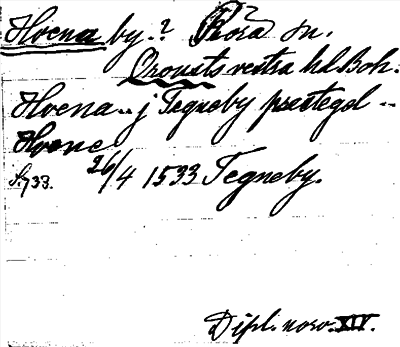 Hvena by.? Röra sn.
Orousts vestra hd. Boh.
Hvena .. j Tegneby prestegel --
Hvene
S. 733. 26/4 1533 Tegneby.
Dipl. norv. XIV.